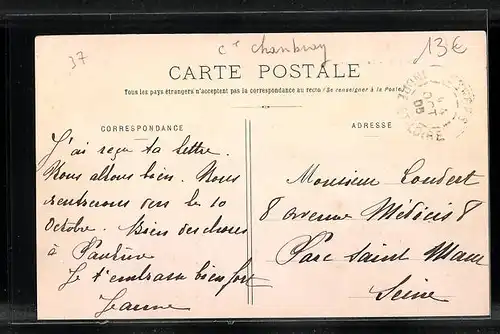 37
Cte Chambray
13€
CARTE POSTALE
Tous les pays étrangers n'acceptent pas la correspondance au recto (Se renseigner à la Poste)
CORRESPONDANCE
J'ai reçu ta lettre.
Nous allons bien. Nous
rentrerons vers le 10
Octobre. Bien des choses
à
Je t'embrasse bien fort
Jeanne
ADRESSE
Monsieur Coudert
8 avenue Médicis 8
Parc Saint Maur
Seine
INDRE ET LOIRE
OCT
05